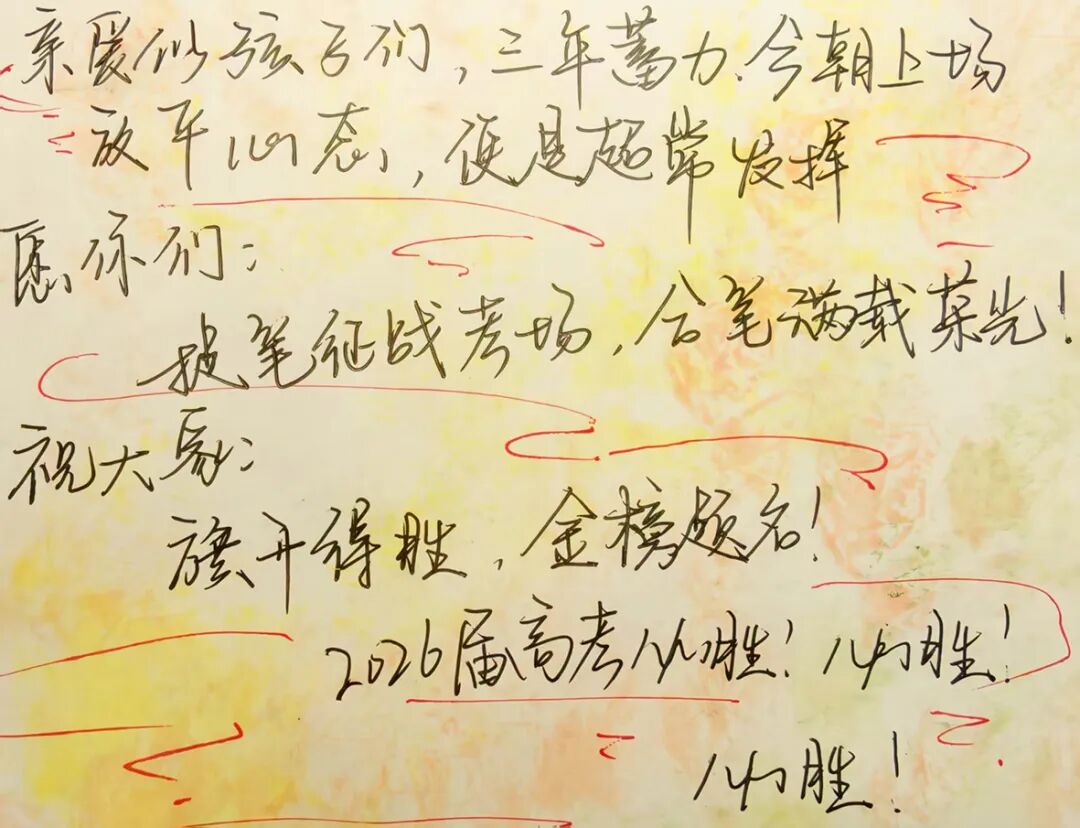 亲爱的孩子们，三年蓄力.今朝上场
放平心态，便是超常发挥
愿你们：
提笔征战考场，合笔满载荣光！
祝大家：
旗开得胜，金榜题名！
2026届高考必胜！必胜！
必胜！